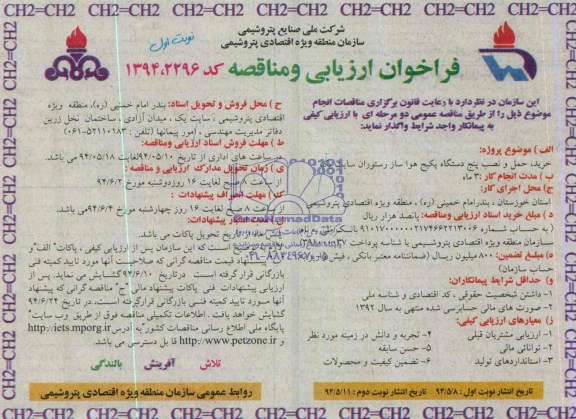 CH2=CH2 CH2=CH2 CH2=CH2 CH2=CH2 CH2=CH2 CH2=CH2 CH2=CH2
شرکت ملی صنایع پتروشیمی
سازمان منطقه ویژه اقتصادی پتروشیمی
نوبت اول
فراخوان ارزیابی ومناقصه کد ۱۳۹۴،۲۲۹۶
این سازمان در نظردارد با رعایت قانون برگزاری مناقصات انجام
موضوع ذیل را از طریق مناقصه عمومی دو مرحله ای با ارزیابی کیفی
به پیمانکار واجد شرایط واگذار نماید:
الف ) موضوع پروژه:
خرید، حمل و نصب پنج دستگاه پکیج هوا ساز رستوران سایت
ب ) مدت انجام کار: ۳ ماه
ج) محل اجرای کار:
استان خوزستان ، بندرامام خمینی (ره) ، منطقه ویژه اقتصادی پتروشیمی
د ) مبلغ خرید اسناد ارزیابی ومناقصه: پانصد هزار ریال
سازمان منطقه ویژه اقتصادی پتروشیمی با شناسه پرداخت
ه) مبلغ تضمین: ۸۰۰ میلیون ریال (ضمانتنامه معتبر بانکی ، فیش واریز
حساب سازمان)
و) حداقل شرایط پیمانکاران:
۱- داشتن شخصیت حقوقی ، کد اقتصادی و شناسه ملی
۲- صورت های مالی حسابرسی شده منتهی به سال ۱۳۹۲
ز) معیارهای ارزیابی کیفی:
۱- ارزیابی مشتریان قبلی
۲- توانائی مالی
۳- استانداردهای تولید
۴- تجربه و دانش در زمینه مورد نظر
۵- حسن سابقه
۶- تضمین کیفیت و محصولات
تاریخ انتشار نوبت اول : ۹۴/۵/۸ تاریخ انتشار نوبت دوم : ۹۴/۵/۱۱
ح ) محل فروش و تحویل اسناد: بندر امام خمینی (ره)، منطقه ویژه
اقتصادی پتروشیمی ، سایت یک ، میدان آزادی ، ساختمان نخل زرین
دفاتر مدیریت مهندسی ، امور پیمانها (تلفن : ۵۲۱۱۰۱۸۳-۰۶۱)
ط ) مهلت فروش اسناد ارزیابی ومناقصه:
در ساعت های اداری از تاریخ ۹۴/۰۵/۱۰ لغایت ۹۴/۰۵/۱۸ می باشد.
ی ) زمان تحویل مدارک ارزیابی و مناقصه :
از ساعت ۸ صبح لغایت ۱۶ روز دوشنبه مورخ ۹۴/۶/۲
ک) مهلت انصراف پیشنهادات :
از ساعت ۸ صبح لغایت ۱۶ روز چهارشنبه مورخ ۹۴/۶/۴ می باشد.
ل) مدت اعتبار پیشنهادات:
ماه از تاریخ تحویل پاکات می باشد.
است که این سازمان پس از ارزیابی کیفی ، پاکات "الف" و
قیمت مناقصه گرانی که صلاحیت آنها مورد تایید کمیته فنی
بازرگانی قرار گرفته است درتاریخ ۹۴/۶/۱۰ گشایش می نماید. پس از
ارزیابی پیشنهادات فنی پاکات پیشنهاد مالی "ج" مناقصه گرانی که پیشنهاد
آنها مورد تایید کمیته فنی بازرگانی قرارگرفته است، در تاریخ ۹۴/۶/۲۴
گشایش خواهد یافت . اطلاعات تکمیلی مناقصه فوق از طریق وب سایت"
پایگاه ملی اطلاع رسانی مناقصات کشور"به آدرس http://iets.mporg.ir
و http://www.petzone.ir قا بل دسترسی می باشد.
تلاش آفرینش بالندگی
روابط عمومی سازمان منطقه ویژه اقتصادی پتروشیمی
CH2=CH2 CH2=CH2 CH2=CH2 CH2=CH2 CH2=CH2 CH2=CH2 CH2=CH2